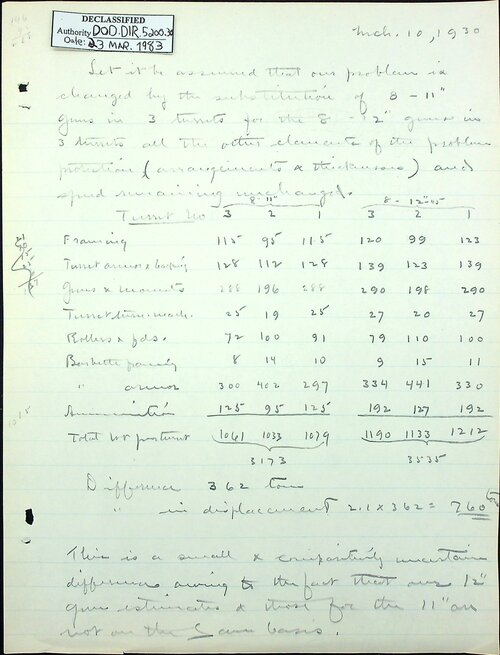 DECLASSIFIED
Authority DOD.DIR.5200.30
Date: 23 MAR. 1983
Mch. 10, 1930
Let it be assumed that our problem is
changed by the substitution of 8 - 11"
guns in 3 turrets for the 8 - 12" guns in
3 turrets all the other elements of the problem
protection (arrangements & thicknesses) and
speed remaining unchanged.
8 - 11" 8 - 12"-45
Turret No 3 2 1 3 2 1
Framing 115 95 115 120 99 123
Turret armor & 128 112 128 139 123 139
Guns & mounts 288 196 288 290 198 290
Turret 25 19 25 27 20 27
Rollers & fds. 72 100 91 79 110 100
Barbette framing 8 14 10 9 15 11
" armor 300 402 297 334 441 330
Ammunition 125 95 125 192 127 192
Total wt per turret 1061 1033 1079 1190 1133 1212
3173 3535
Difference 362 tons
" in displacement 2.1 x 362 = 760 tons
This is a small & comparatively uncertain
difference owing to the fact that our 12"
gun estimates & those for the 11" are
not on the same basis.